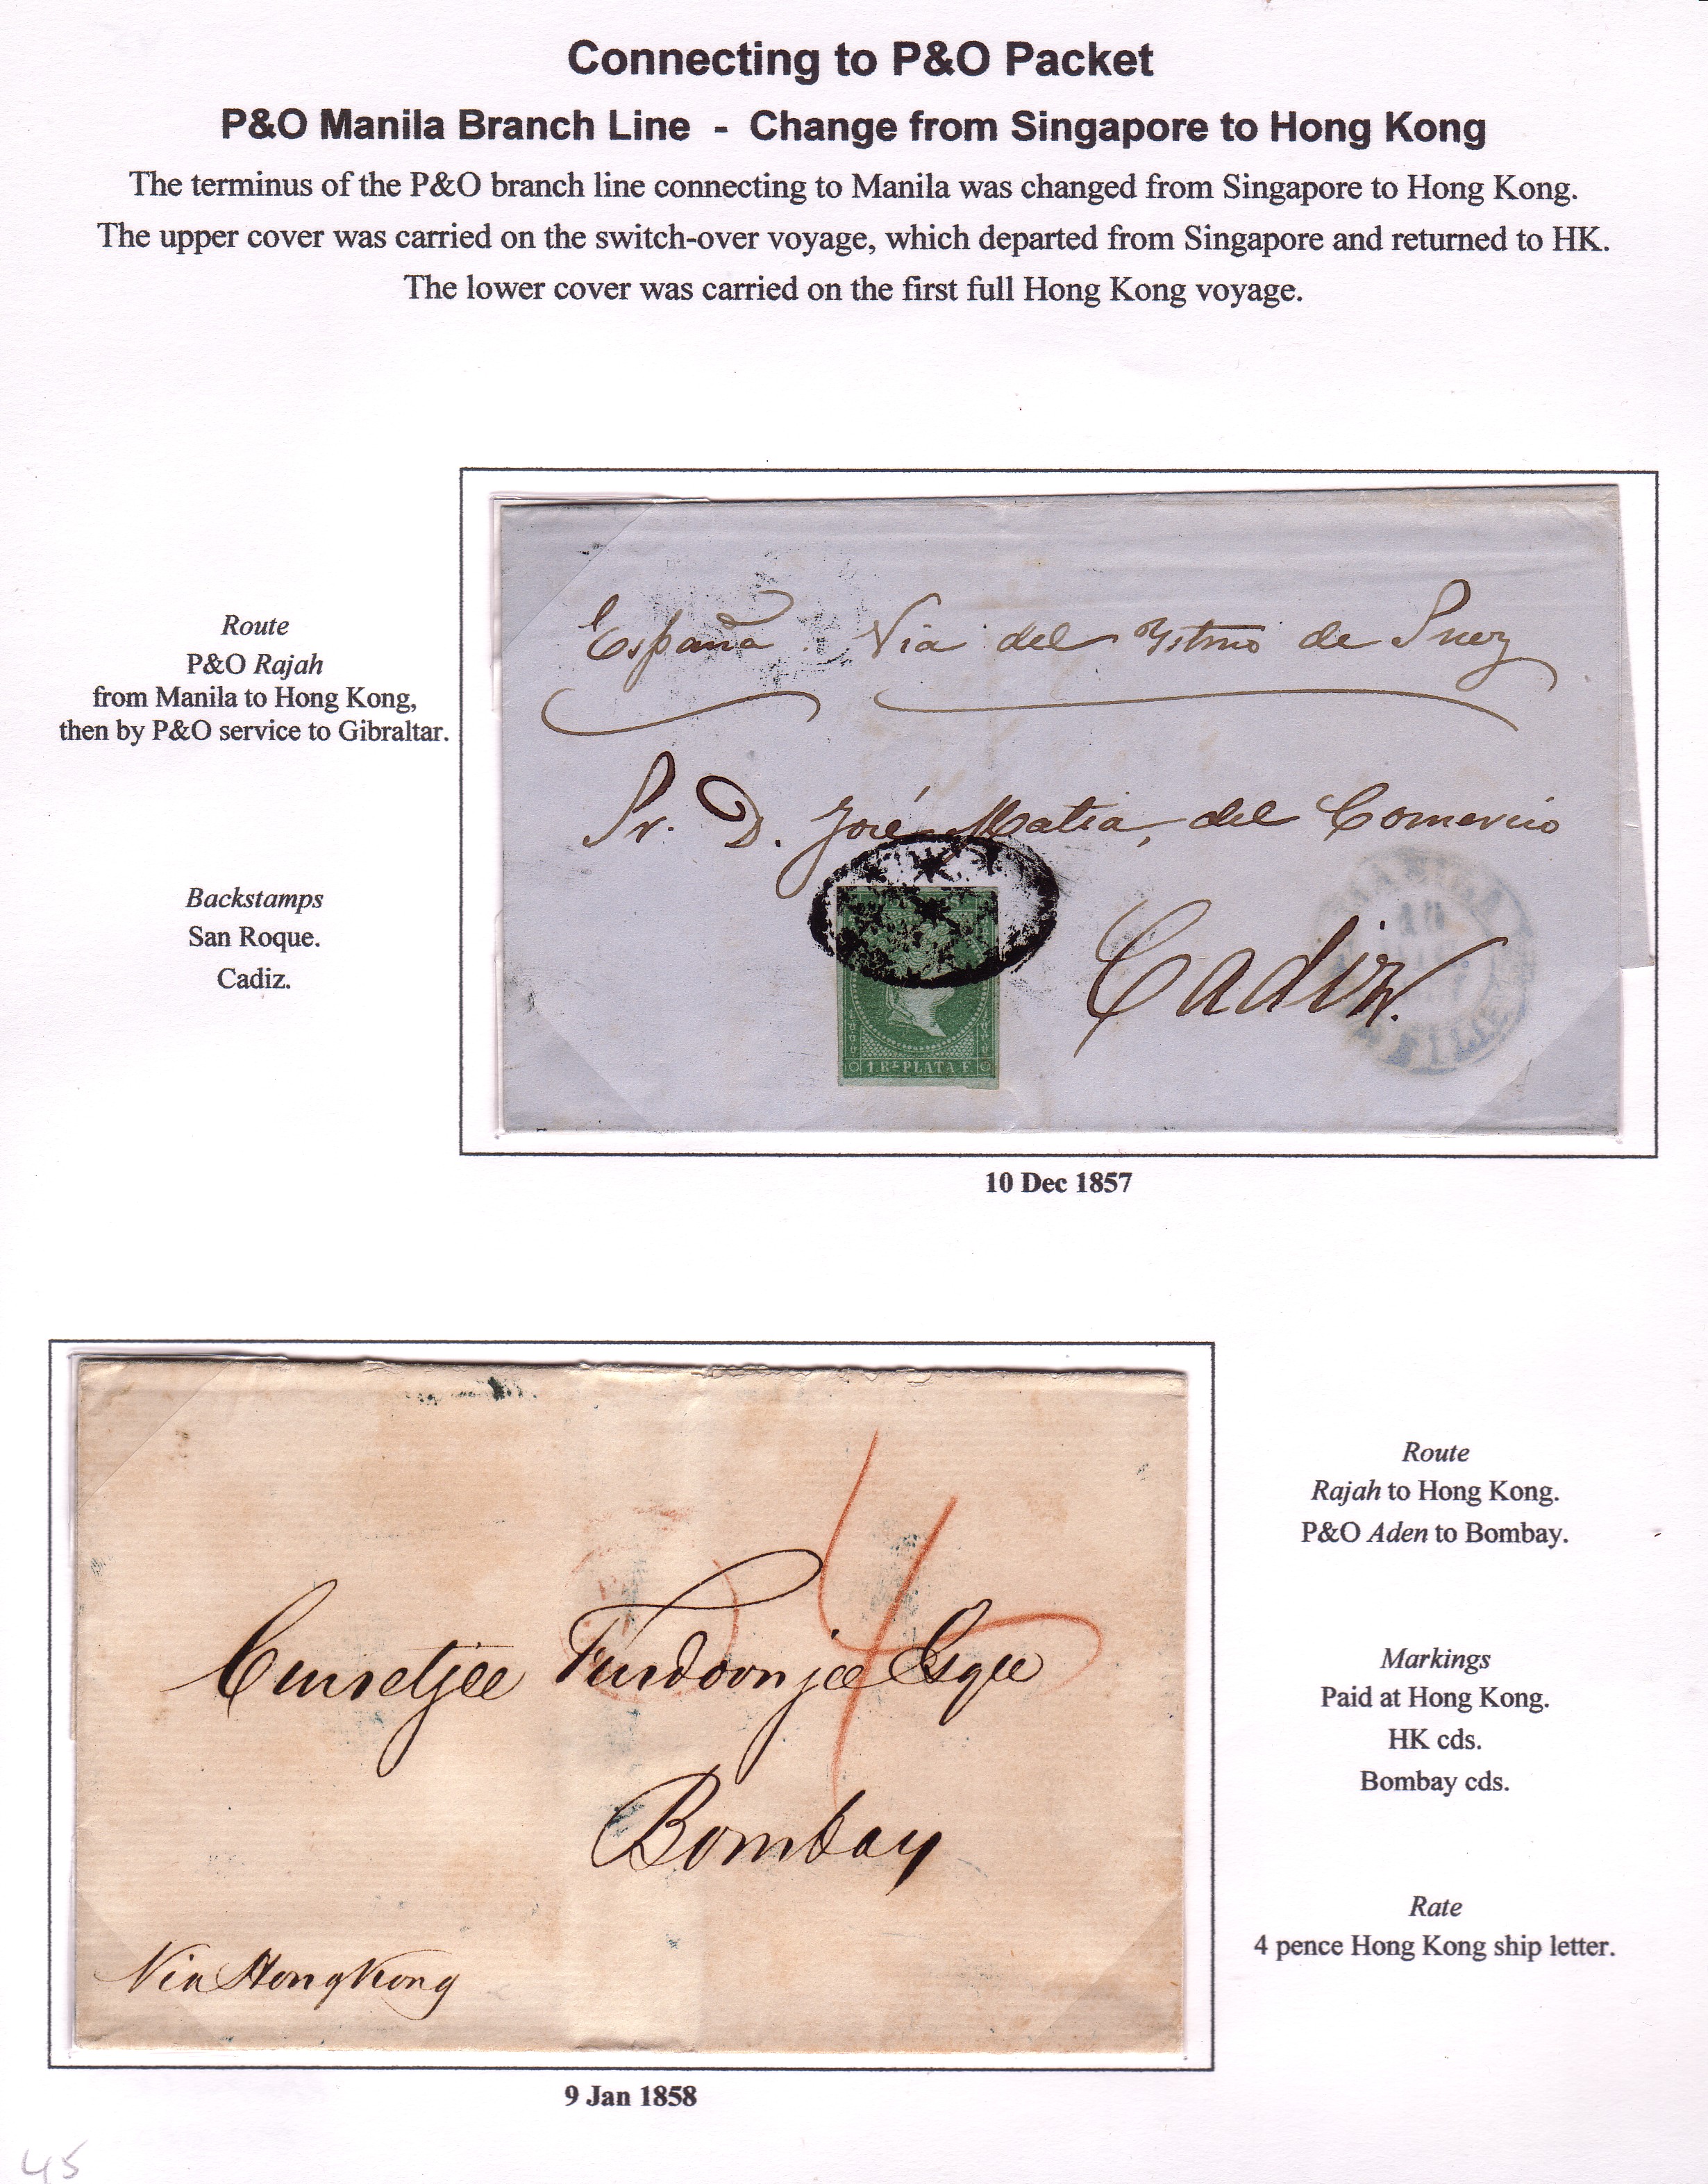 Connecting to P&O Packet
P&O Manila Branch Line - Change from Singapore to Hong Kong
The terminus of the P&O branch line connecting to Manila was changed from Singapore to Hong Kong.
The upper cover was carried on the switch-over voyage, which departed from Singapore and returned to HK.
The lower cover was carried on the first full Hong Kong voyage.
Route
P&O Rajah
from Manila to Hong Kong,
then by P&O service to Gibraltar.
Backstamps
San Roque.
Cadiz.
España. Via del Ystmo de Suez
Sr. D. José Matia, del Comercio
Cadiz.
MANILA
10
1 Rl PLATA F.
10 Dec 1857
4
Cursetjee Furdoonjee Esqre
Bombay
Via HongKong
9 Jan 1858
Route
Rajah to Hong Kong.
P&O Aden to Bombay.
Markings
Paid at Hong Kong.
HK cds.
Bombay cds.
Rate
4 pence Hong Kong ship letter.
45